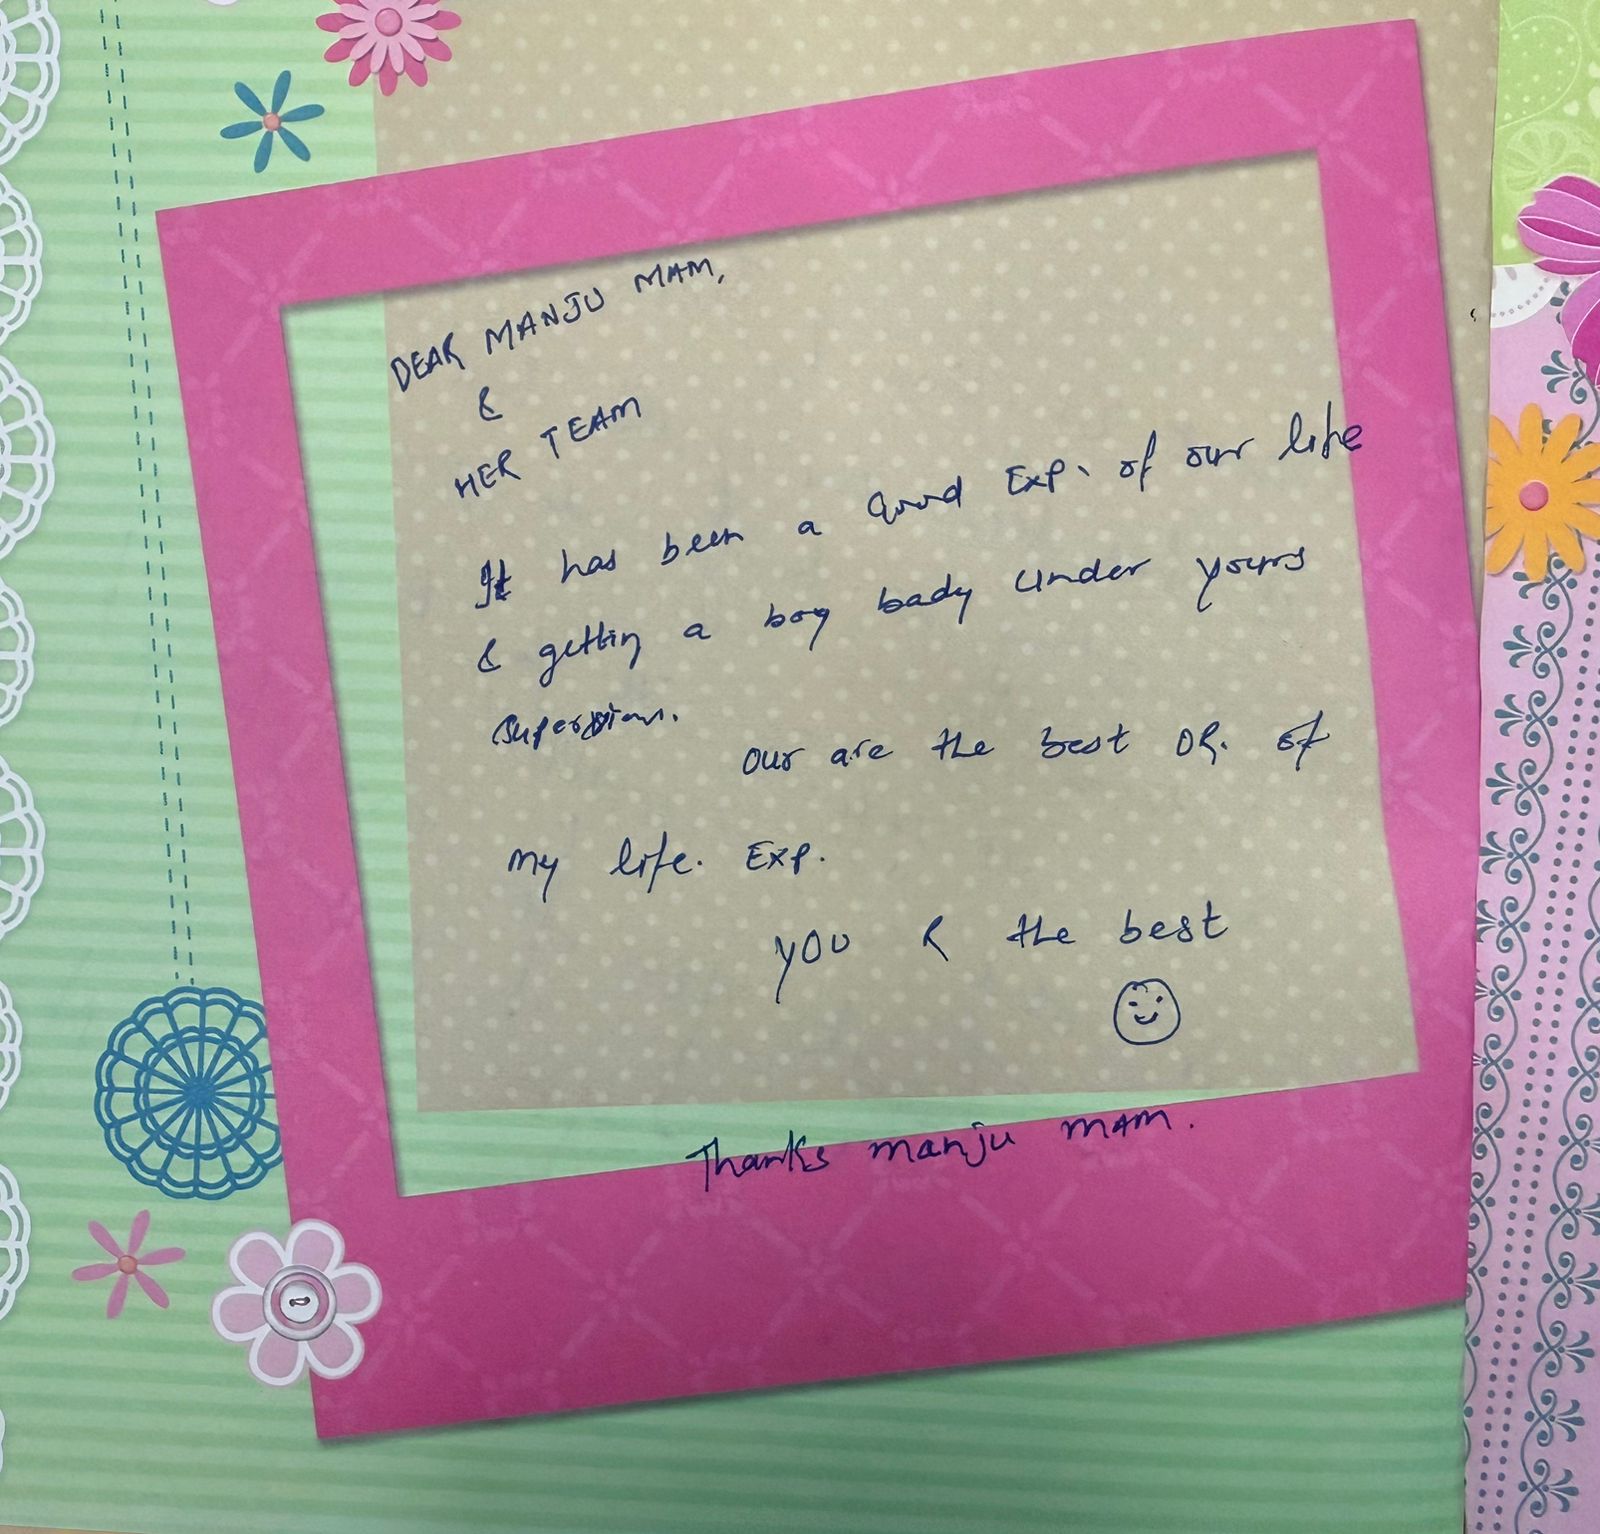 DEAR MANJU MAM,
&
HER TEAM
It has been a Good Exp. of our life
& getting a boy bady under yours
Supervison.
Our are the best DR. of
my life. Exp.
YOU R the best
Thanks manju MAM.